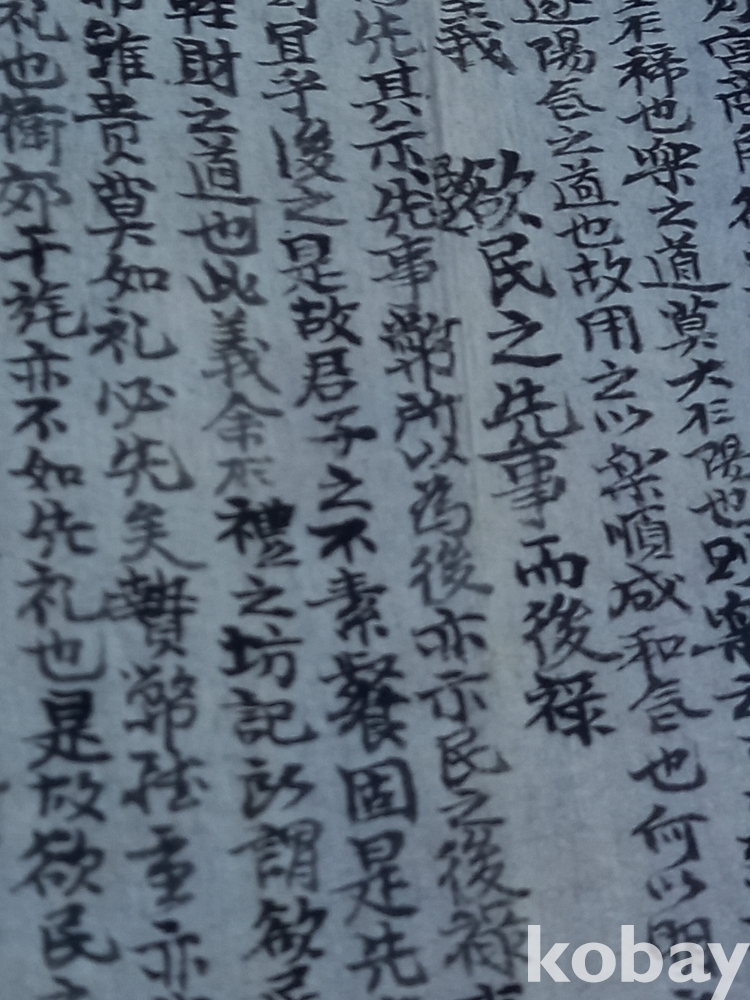 宮商角
不稀也楽之道莫大於陽也則寧
遂陽合之道也故用之以楽順成和合也何以明
義 欲民之先事而後禄
先其示先事幣所以為後亦示民之後禄
宜乎後之是故君子之不素餐固是先
軽財之道也此義余於禮之坊記所謂欲民
雖貴莫如礼必先矣贄幣雖重亦
礼也衛郊干旄亦不如先礼也是故欲民
kobay